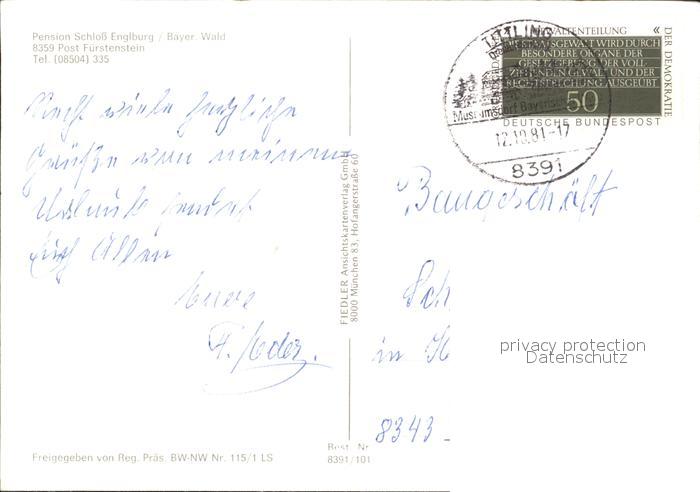 Pension Schloß Englburg / Bayer. Wald
8359 Post Fürstenstein
Tel. (08504) 335
Recht viele herzliche
Grüße von meinem
Urlaub sendet
Euch Allen
FIEDLER Ansichtskartenverlag GmbH
8000 München 83, Hofangerstraße 60
Freigegeben von Reg. Präs. BW-NW Nr. 115/1 LS
Best. Nr
8391/101
TITTLING
Museumsdorf Bayerischer
12.10.81-17
8391
GEWALTENTEILUNG «
DIE STAATSGEWALT WIRD DURCH
BESONDERE ORGANE DER
GESETZGEBUNG, DER VOLL-
ZIEHENDEN GEWALT UND DER
RECHTSPRECHUNG AUSGEÜBT
50
DEUTSCHE BUNDESPOST
DER DEMOKRATIE
Baugeschäft
Sch
in
8343
privacy protection
Datenschutz